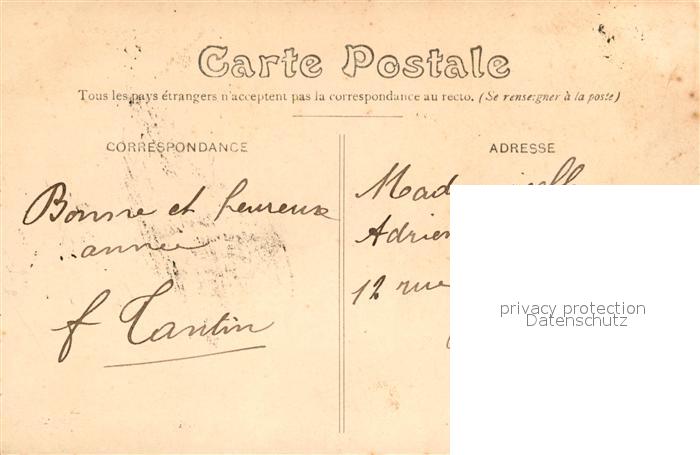 Carte Postale
Tous les pays étrangers n'acceptent pas la correspondance au recto. (Se renseigner à la poste)
CORRESPONDANCE
Bonne et heureuse
année
f Tantin
ADRESSE
Adrien
12 rue
privacy protection
Datenschutz